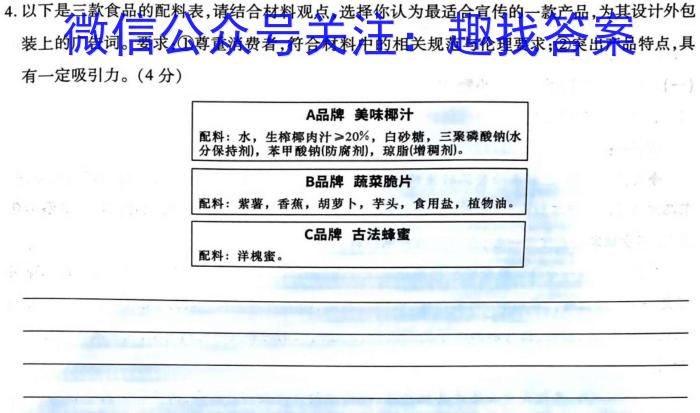 4. 以下是三款食品的配料表，请结合材料观点，选择你认为最适合宣传的一款产品，为其设计外包
装上的广告词。要求：①尊重消费者，符合材料中的相关规范与伦理要求；②突出产品特点，具
微信公众号关注：趣找答案
有一定吸引力。（4 分）
A品牌 美味椰汁
配料：水，生榨椰肉汁≥20%，白砂糖，三聚磷酸钠(水
分保持剂)，苯甲酸钠(防腐剂)，琼脂(增稠剂)。
B品牌 蔬菜脆片
配料：紫薯，香蕉，胡萝卜，芋头，食用盐，植物油。
C品牌 古法蜂蜜
配料：洋槐蜜。